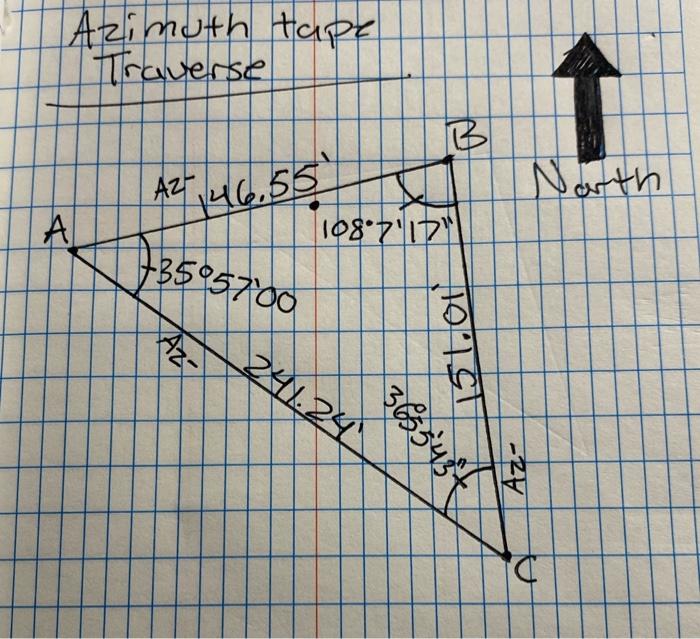 Azimuth tape
Traverse
North
B
Az- 146.55'
A
108°7'17"
35°57'00
151.01'
Az-
241.24'
36°55'43"
Az-
C